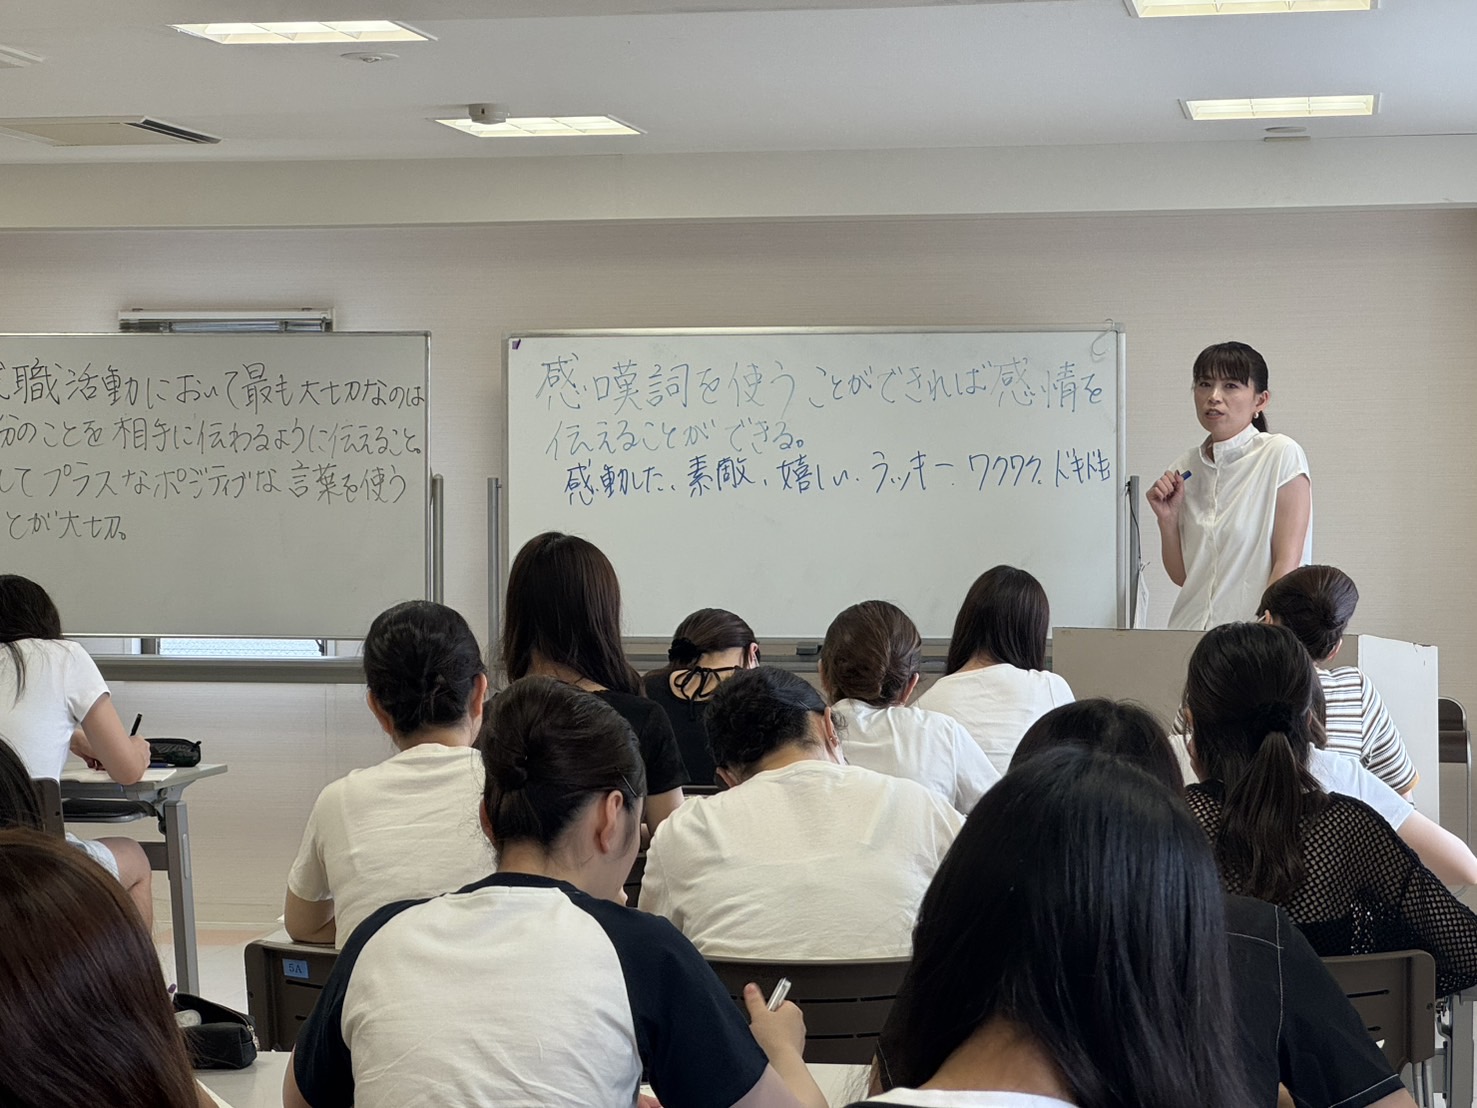 職活動において最も大切なのは
分のことを相手に伝わるように伝えること。
してプラスなポジティブな言葉を使う
とが大切。
感嘆詞を使うことができれば感情を
伝えることができる。
感動した、素敵、嬉しい、ラッキー、ワクワク、ドキドキ
5A